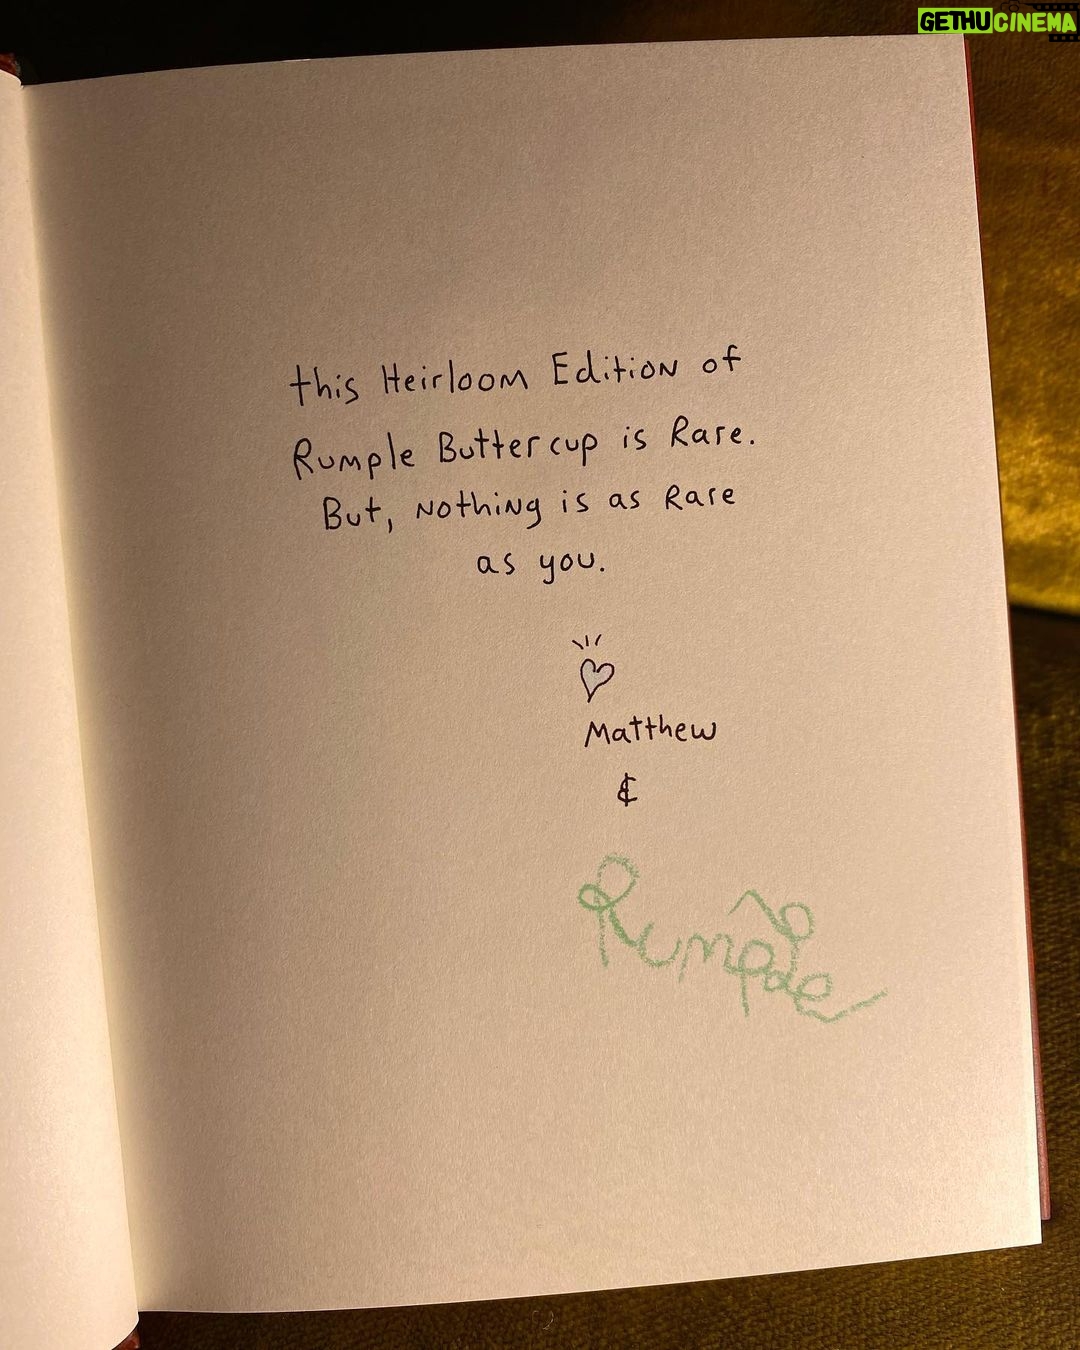 GETHUCINEMA
this Heirloom Edition of
Rumple Buttercup is Rare.
But, nothing is as Rare
as you.
Matthew
&
Rumple